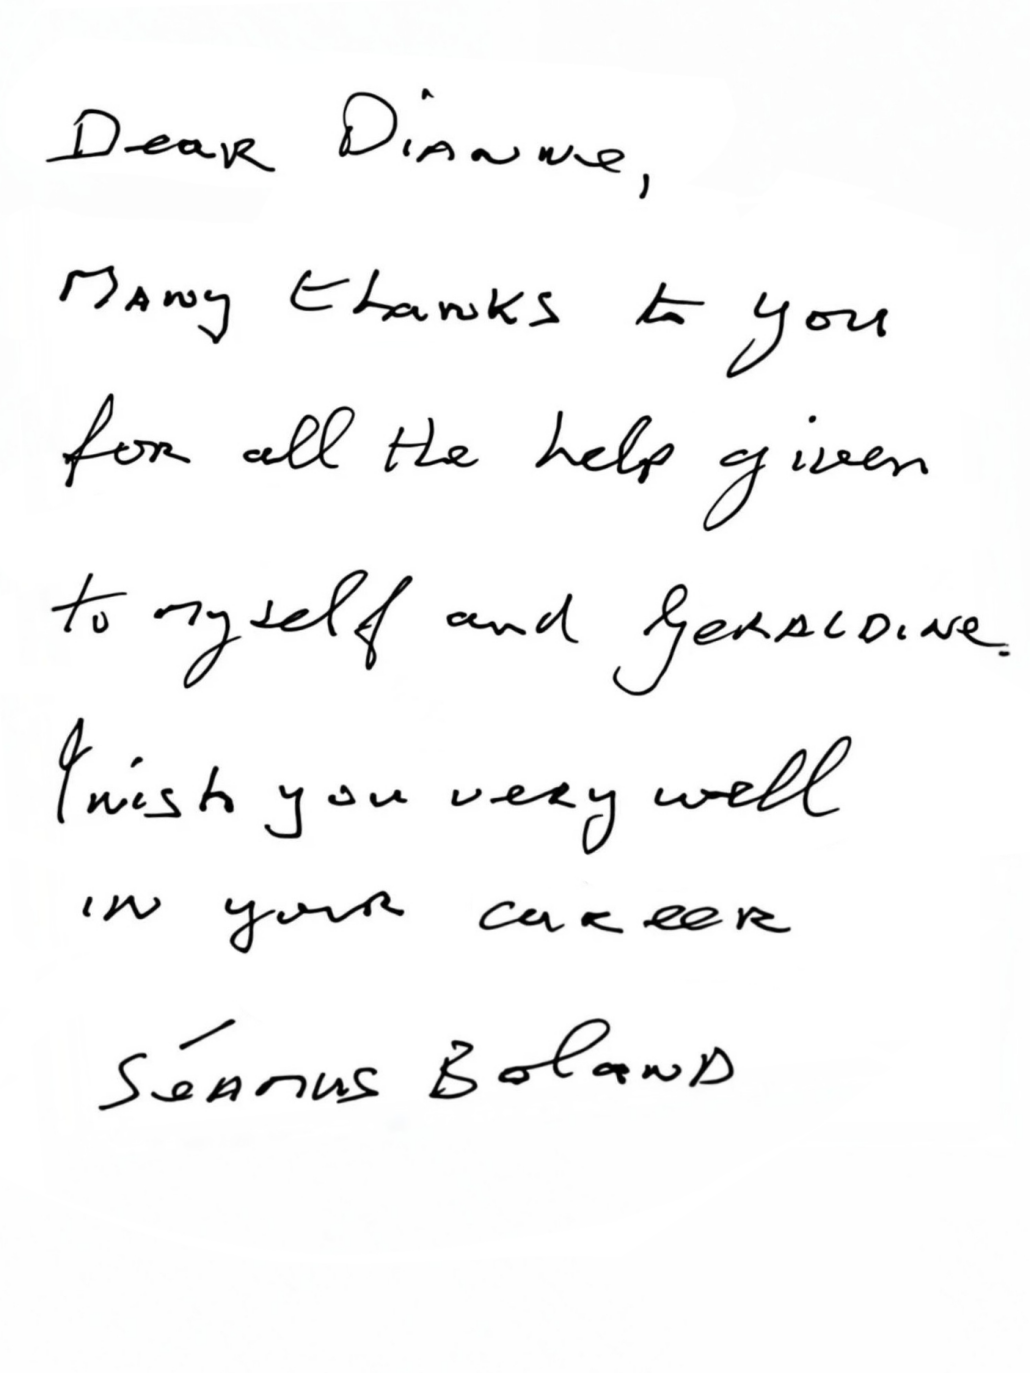 Dear Dianne,
Many thanks to you
for all the help given
to myself and Geraldine.
I wish you very well
in your career
Séamus Boland